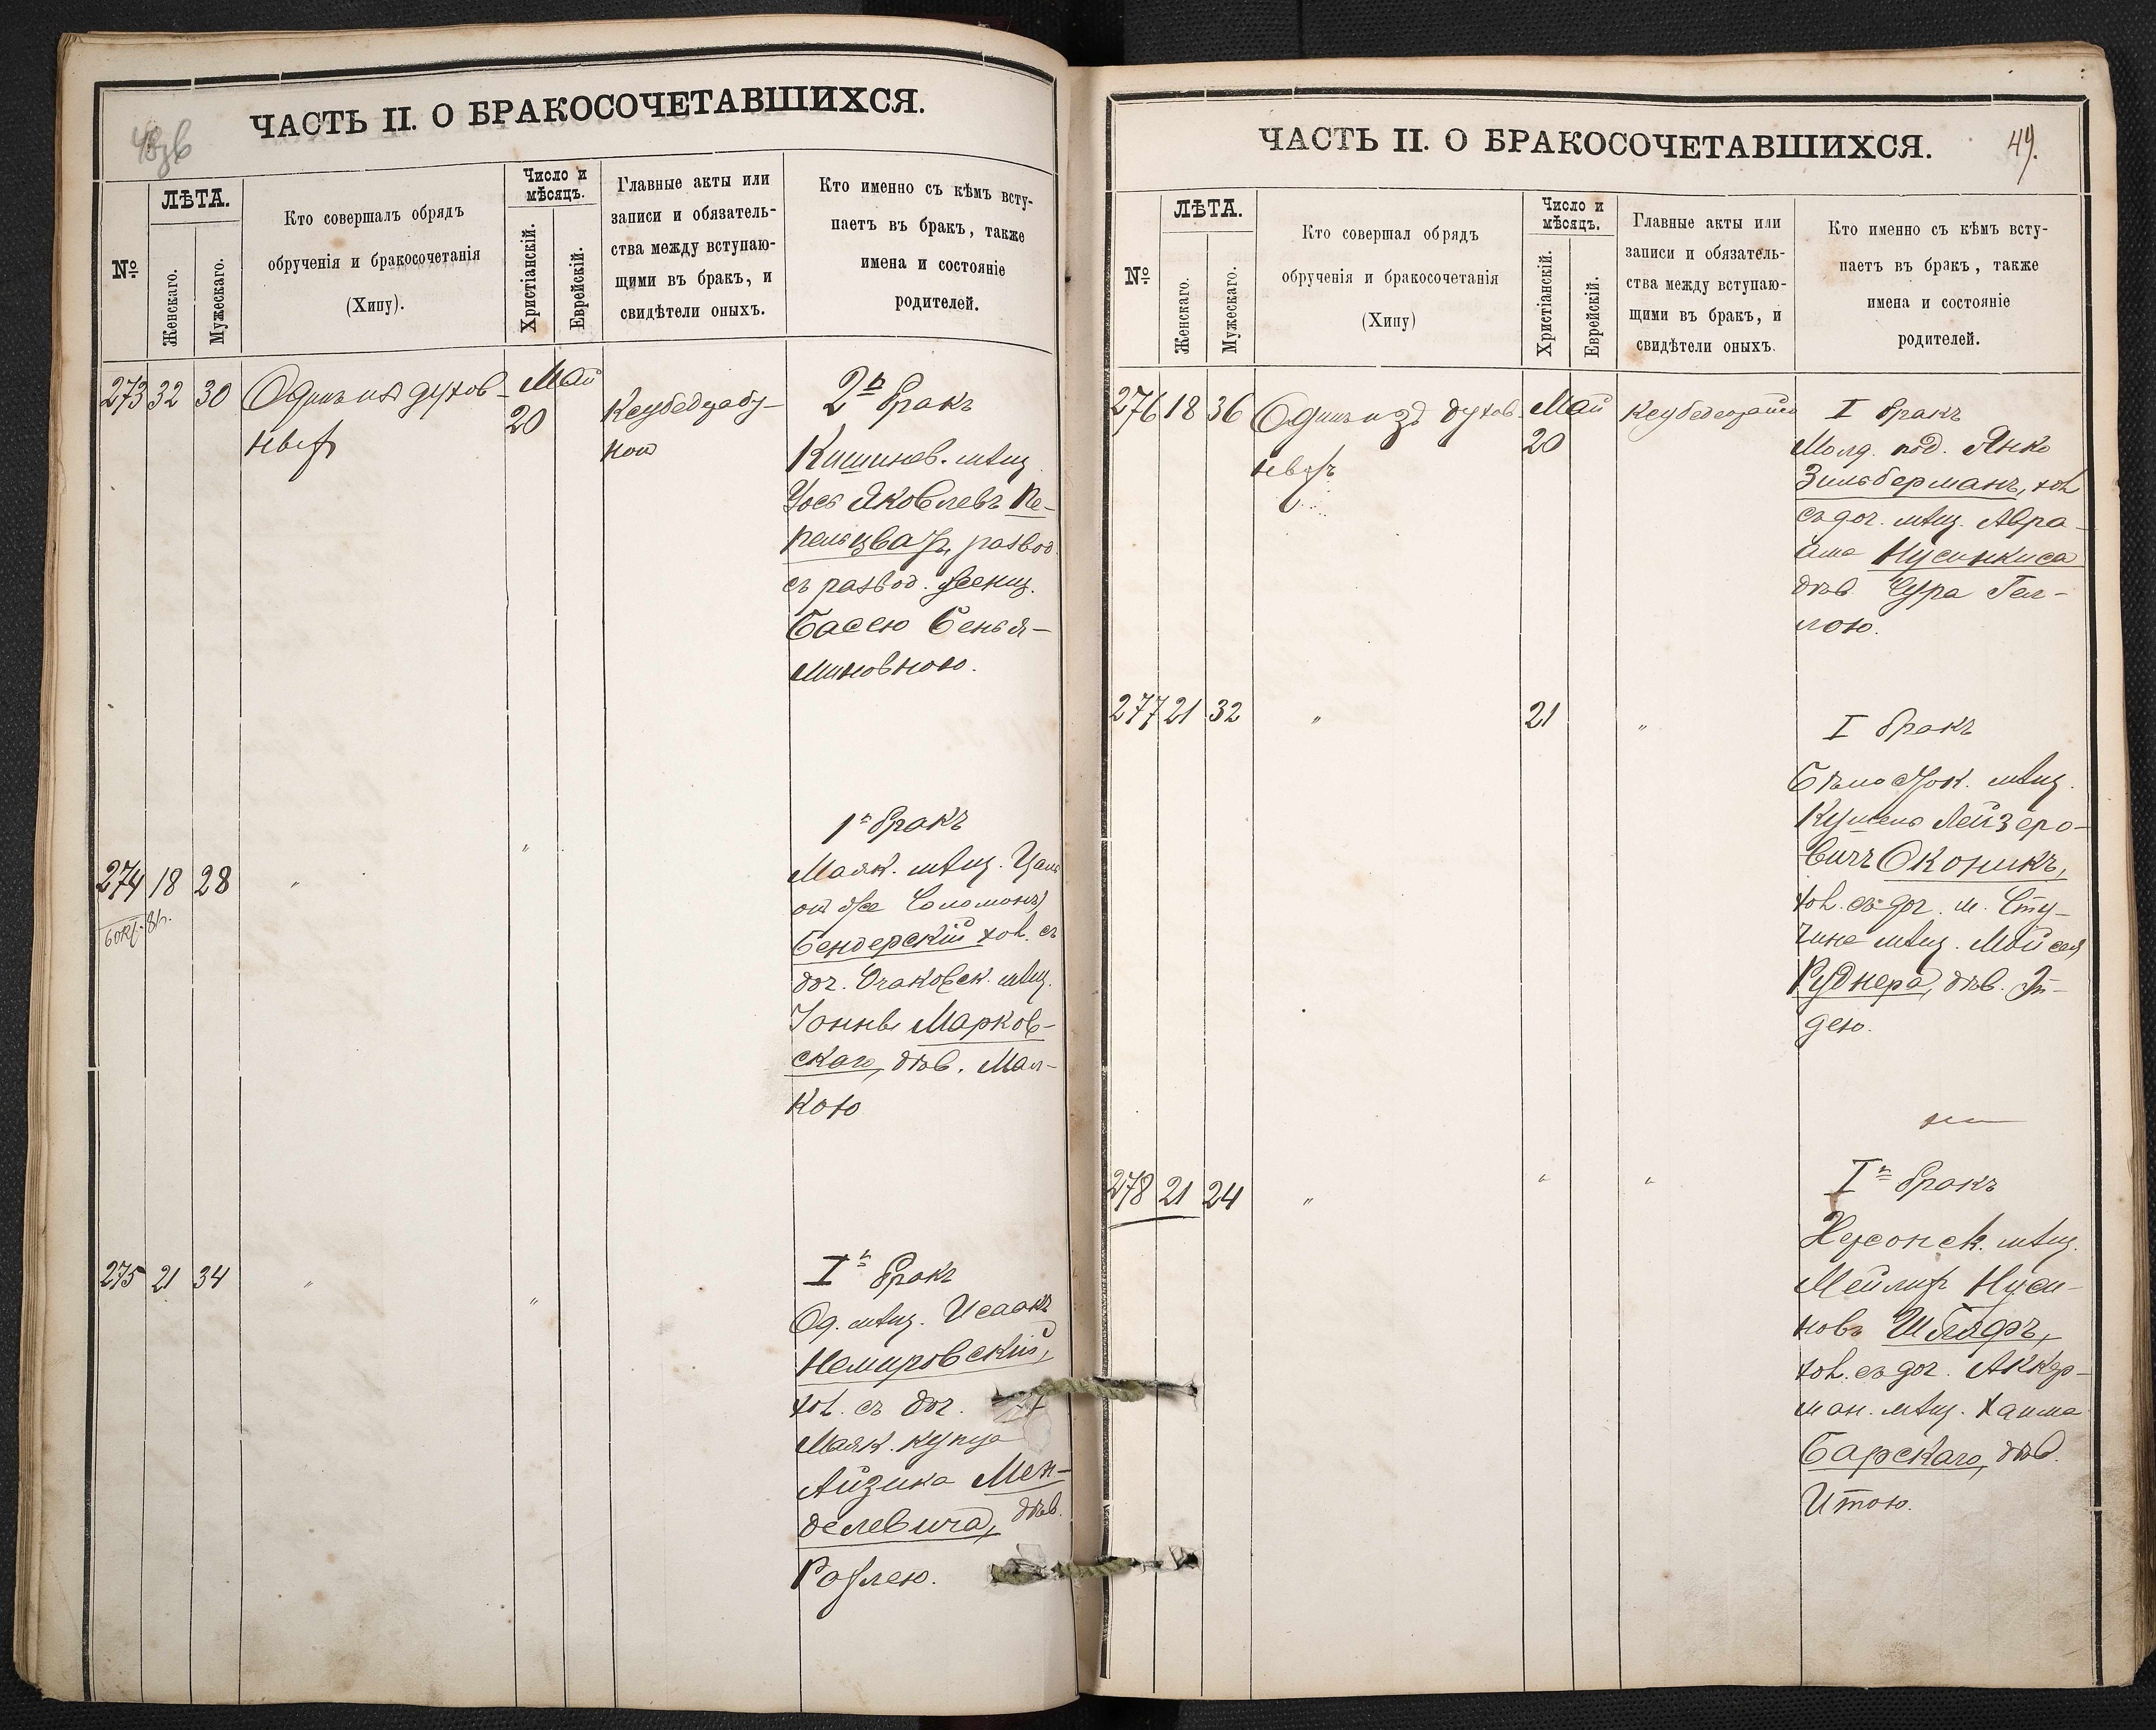 ЧАСТЬ II. О БРАКОСОЧЕТАВШИХСЯ.
№
ЛѢТА.
Женскаго.
Мужескаго.
Кто совершалъ обрядъ
обрученія и бракосочетанія
(Хипу).
Число и
мѣсяцъ.
Христіанскій.
Еврейскій.
Главные акты или
записи и обязатель-
ства между вступаю-
щими въ бракъ, и
свидѣтели оныхъ.
Кто именно съ кѣмъ всту-
паетъ въ бракъ, также
имена и состояніе
родителей.
273 32 30 Одинъ изъ духов-
ныхъ
Май
20
2й бракъ
Кишинев. мѣщ.
Іось Яковлевъ Пе-
рельцвайг, развод.
съ развод. женщ.
Басею Бенья-
миновною.
274 18 28 " "
1й бракъ
Маяк. мѣщ.
онъ же Соломонъ)
Бендерскій хол. съ
доч. Очаковск. мѣщ.
Іонны Марков-
скаго, дѣв. Мал-
кою
275 21 34 " "
Iй бракъ
Од. мѣщ. Исаакъ
Немировскій,
хол. съ доч.
Маяк. купца
Айзика Мен-
делевича, дѣв.
Рохлею.
ЧАСТЬ II. О БРАКОСОЧЕТАВШИХСЯ.
49.
№
ЛѢТА.
Женскаго.
Мужескаго.
Кто совершал обрядъ
обрученія и бракосочетанія
(Хипу)
Число и
мѣсяцъ.
Христіанскій.
Еврейскій.
Главные акты или
записи и обязатель-
ства между вступаю-
щими въ бракъ, и
свидѣтели оныхъ.
Кто именно съ кѣмъ всту-
паетъ въ бракъ, также
имена и состояніе
родителей.
276 18 36 Одинъ изъ духов-
ныхъ
Май
20
I бракъ
Молд. под. Янко
Зильберманъ, хол.
съ доч. мѣщ. Авра-
ама Нусинкиса
дѣв. Сура Гел-
лою.
277 21 32 " 21 "
I бракъ
Бѣлосток. мѣщ.
Кушель Лейзеро-
вичъ Оконикъ,
хол. съ доч. м. Сту-
чина мѣщ. Мойсея
Руднера, дѣв. Ін-
дею.
278 21 24 " " "
Iй бракъ
Херсонск. мѣщ.
Мейлих Нуси-
новъ
хол. съ доч. Аккер-
ман. мѣщ. Хаима
Барскаго, дѣв.
Итою.